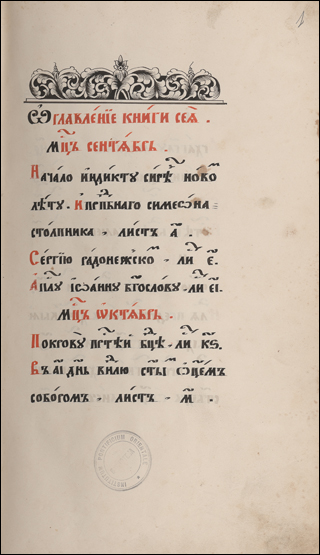 1
Ѡглавле́нїе кни́ги сеѧ̀ .
Мцⷭ҇ъ сентѧ́брь .
Нача́ло и҆ндикту си́рѣⷱ҇ но́вомꙋ
лѣ́ту . и҆ прⷣпбнаго симеѡ́на
сто́лпника . листъ а҃ .
Се́ргїю ра́донежскоⷨ . лиⷭ҇ є҃ .
Апⷭ҇лꙋ і҆ѡа́нну бг҃ослову . лиⷭ҇ є҃і .
Мцⷭ҇ъ ѻ҆ктѧ́брь .
Покро́вꙋ прⷭ҇тѣ́й бцⷣе . лиⷭ҇ к҃ѕ .
Въ а҃і дн҃ь в нⷣлю ст҃ыⷨ ѻ҆ц҃е́мъ
собо́ромъ . листъ . м҃ .